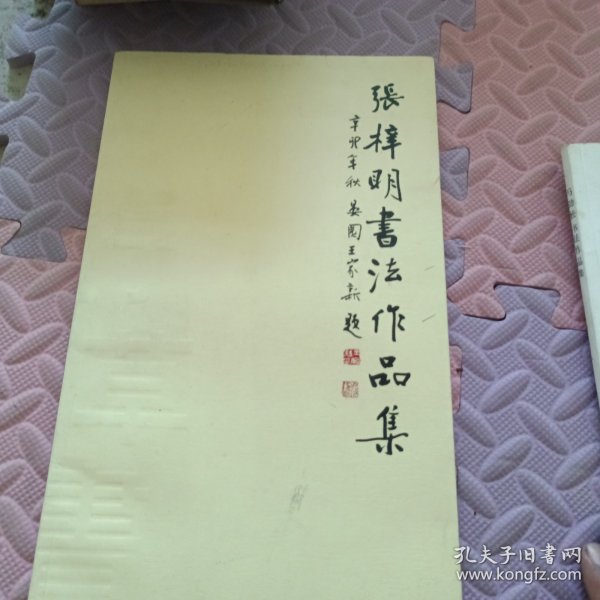 張梓明書法作品集
辛卯年秋 晏園王家新題
孔夫子旧书网
www.kongfz.com